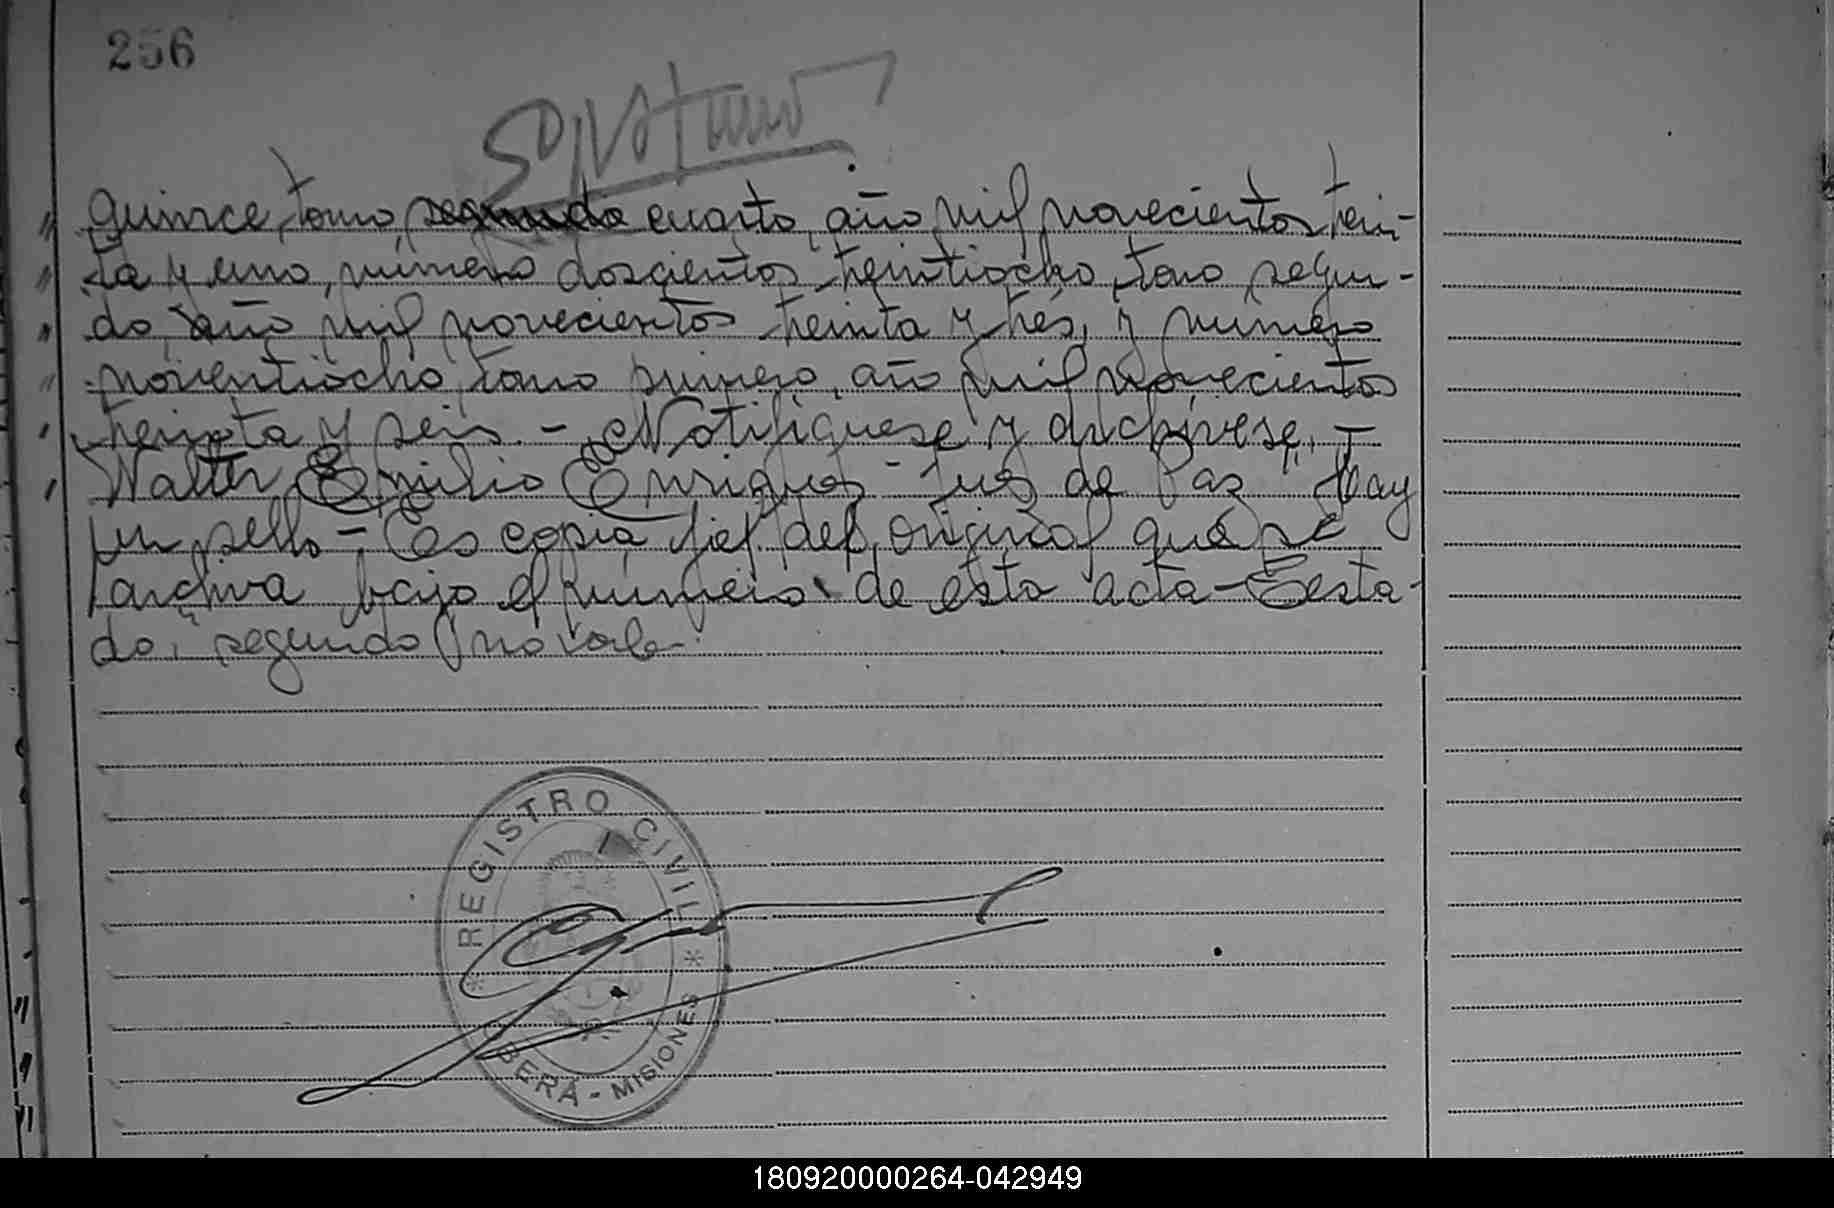 256
quince, tomo, segundo cuarto, año mil novecientos trein-
ta y uno, número doscientos treintiocho, tomo segun-
do año mil novecientos treinta y trés, y numero
noventiocho, tomo primero, año mil novecientos
treinta y seis. - Notifíquese y archívese. -
Walter Emilio Enriques - Juez de Paz" Hay
un sello - Es copia fiel del original que se
archiva bajo el numero de esta acta - Testa-
do: segundo no vale -
REGISTRO CIVIL
OBERÁ - MISIONES
180920000264-042949